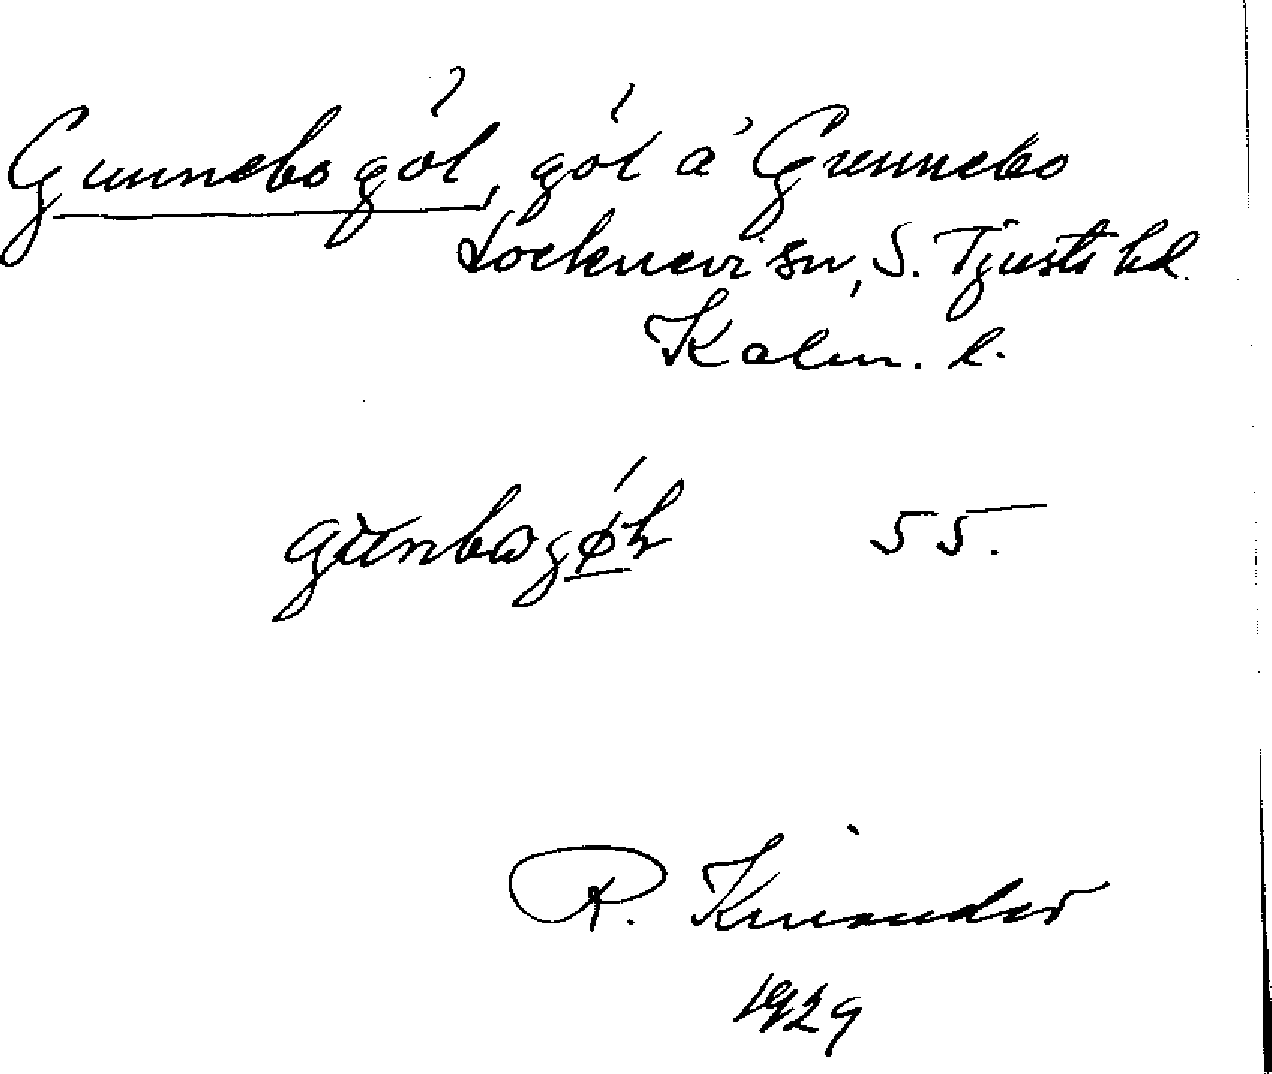 Gunnebogöl, göl å Gunnebo
Locknevi sn, S. Tjusts hd.
Kalm. l.
55.
R. Kinander
1929